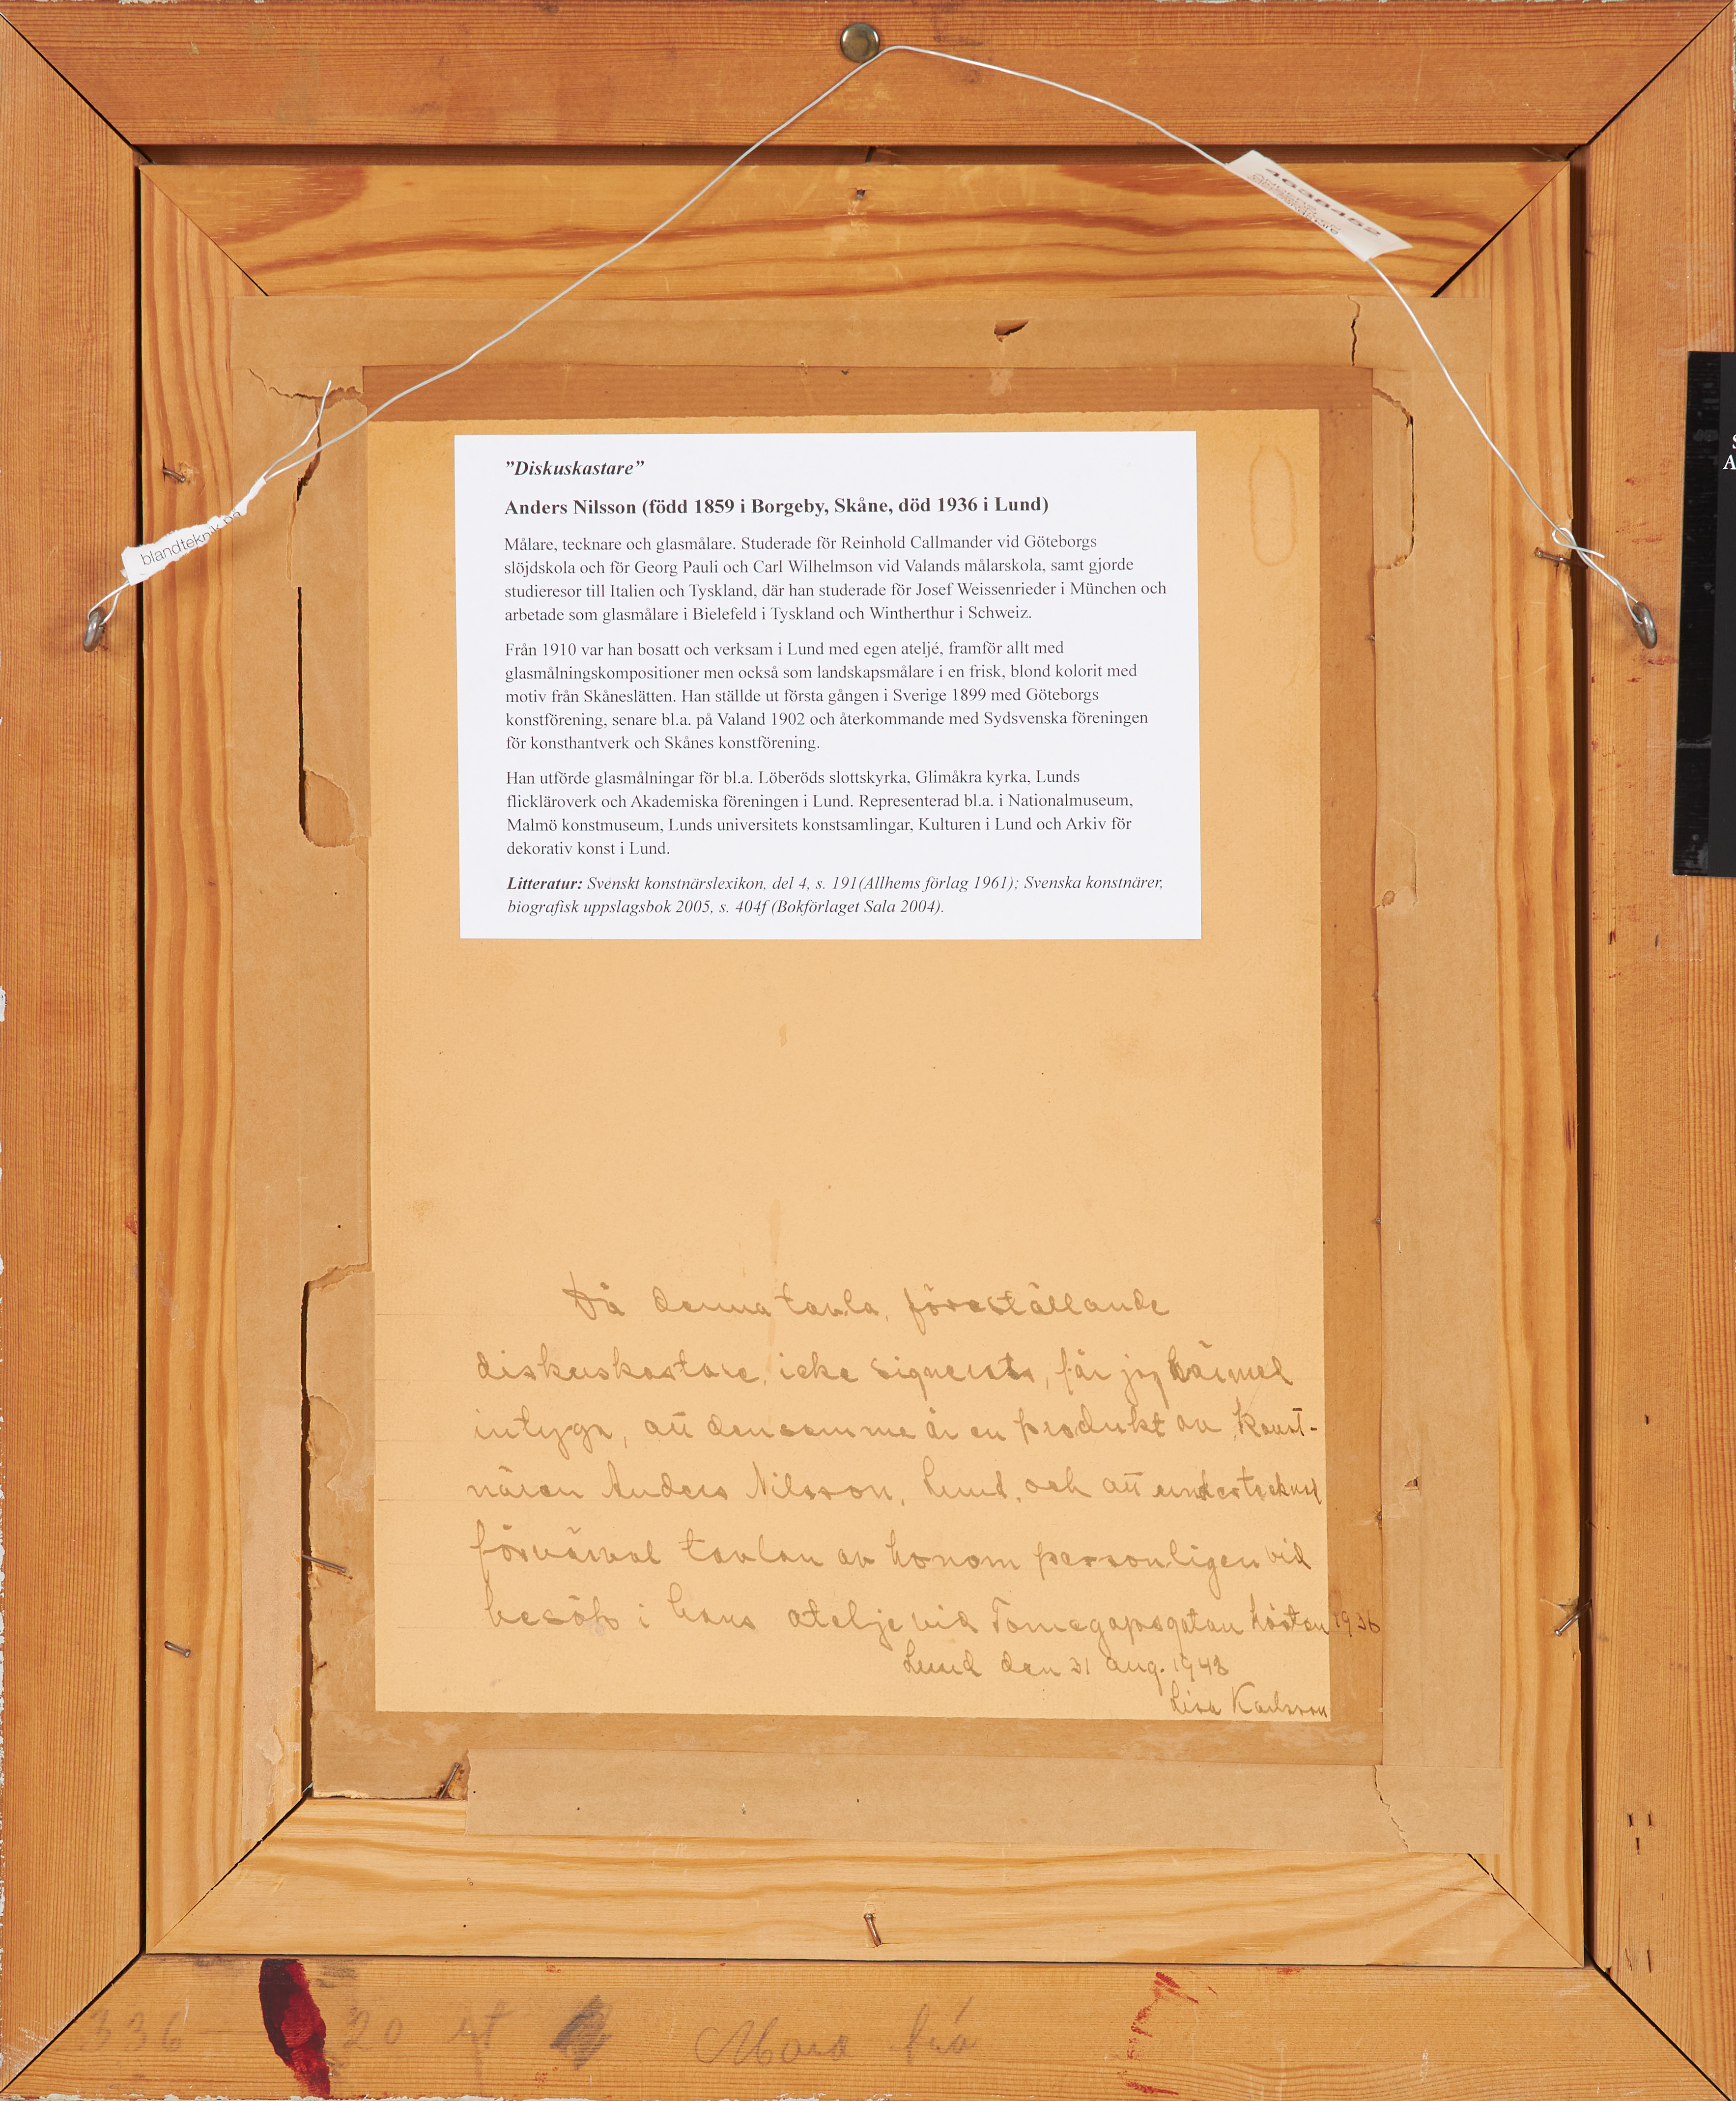 4658452
blandteknik på
S
A
”Diskuskastare”
Anders Nilsson (född 1859 i Borgeby, Skåne, död 1936 i Lund)
Målare, tecknare och glasmålare. Studerade för Reinhold Callmander vid Göteborgs
slöjdskola och för Georg Pauli och Carl Wilhelmson vid Valands målarskola, samt gjorde
studieresor till Italien och Tyskland, där han studerade för Josef Weissenrieder i München och
arbetade som glasmålare i Bielefeld i Tyskland och Wintherthur i Schweiz.
Från 1910 var han bosatt och verksam i Lund med egen ateljé, framför allt med
glasmålningskompositioner men också som landskapsmålare i en frisk, blond kolorit med
motiv från Skåneslätten. Han ställde ut första gången i Sverige 1899 med Göteborgs
konstförening, senare bl.a. på Valand 1902 och återkommande med Sydsvenska föreningen
för konsthantverk och Skånes konstförening.
Han utförde glasmålningar för bl.a. Löberöds slottskyrka, Glimåkra kyrka, Lunds
flickläroverk och Akademiska föreningen i Lund. Representerad bl.a. i Nationalmuseum,
Malmö konstmuseum, Lunds universitets konstsamlingar, Kulturen i Lund och Arkiv för
dekorativ konst i Lund.
Litteratur: Svenskt konstnärslexikon, del 4, s. 191(Allhems förlag 1961); Svenska konstnärer,
biografisk uppslagsbok 2005, s. 404f (Bokförlaget Sala 2004).
Då denna tavla, föreställande
diskuskastare, icke signerats, får jag härmed
intyga, att densamme är en produkt av konst-
nären Anders Nilsson, Lund, och att undertecknad
förvärvat tavlan av honom personligen vid
besök i hans atelje vid Tomegapsgatan hösten 1936
Lund den 31 aug. 1948
Lisa Karlsson
336 20